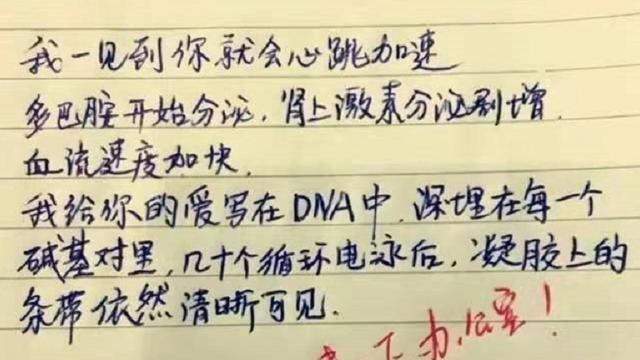 我一见到你就会心跳加速
多巴胺开始分泌，肾上激素分泌剧增，
血流速度加快，
我给你的爱写在DNA中，深埋在每一个
碱基对里，几十个循环电泳后，凝胶上的
条带依然清晰可见．
下办公室！